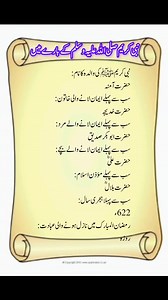 نبی کریم صلی اللہ علیہ وسلم کے بارے میں
نبی کریم ﷺ کی والدہ کا نام:
حضرت آمنہ
سب سے پہلے ایمان لانے والی خاتون:
حضرت خدیجہ
سب سے پہلے ایمان لانے والے مرد:
حضرت ابوبکر صدیق
سب سے پہلے ایمان لانے والے بچے:
حضرت علی
سب سے پہلا مؤذن اسلام:
حضرت بلال
سب سے پہلا ہجری سال:
622ء
رمضان المبارک میں نازل ہونے والی عبادت:
روزہ